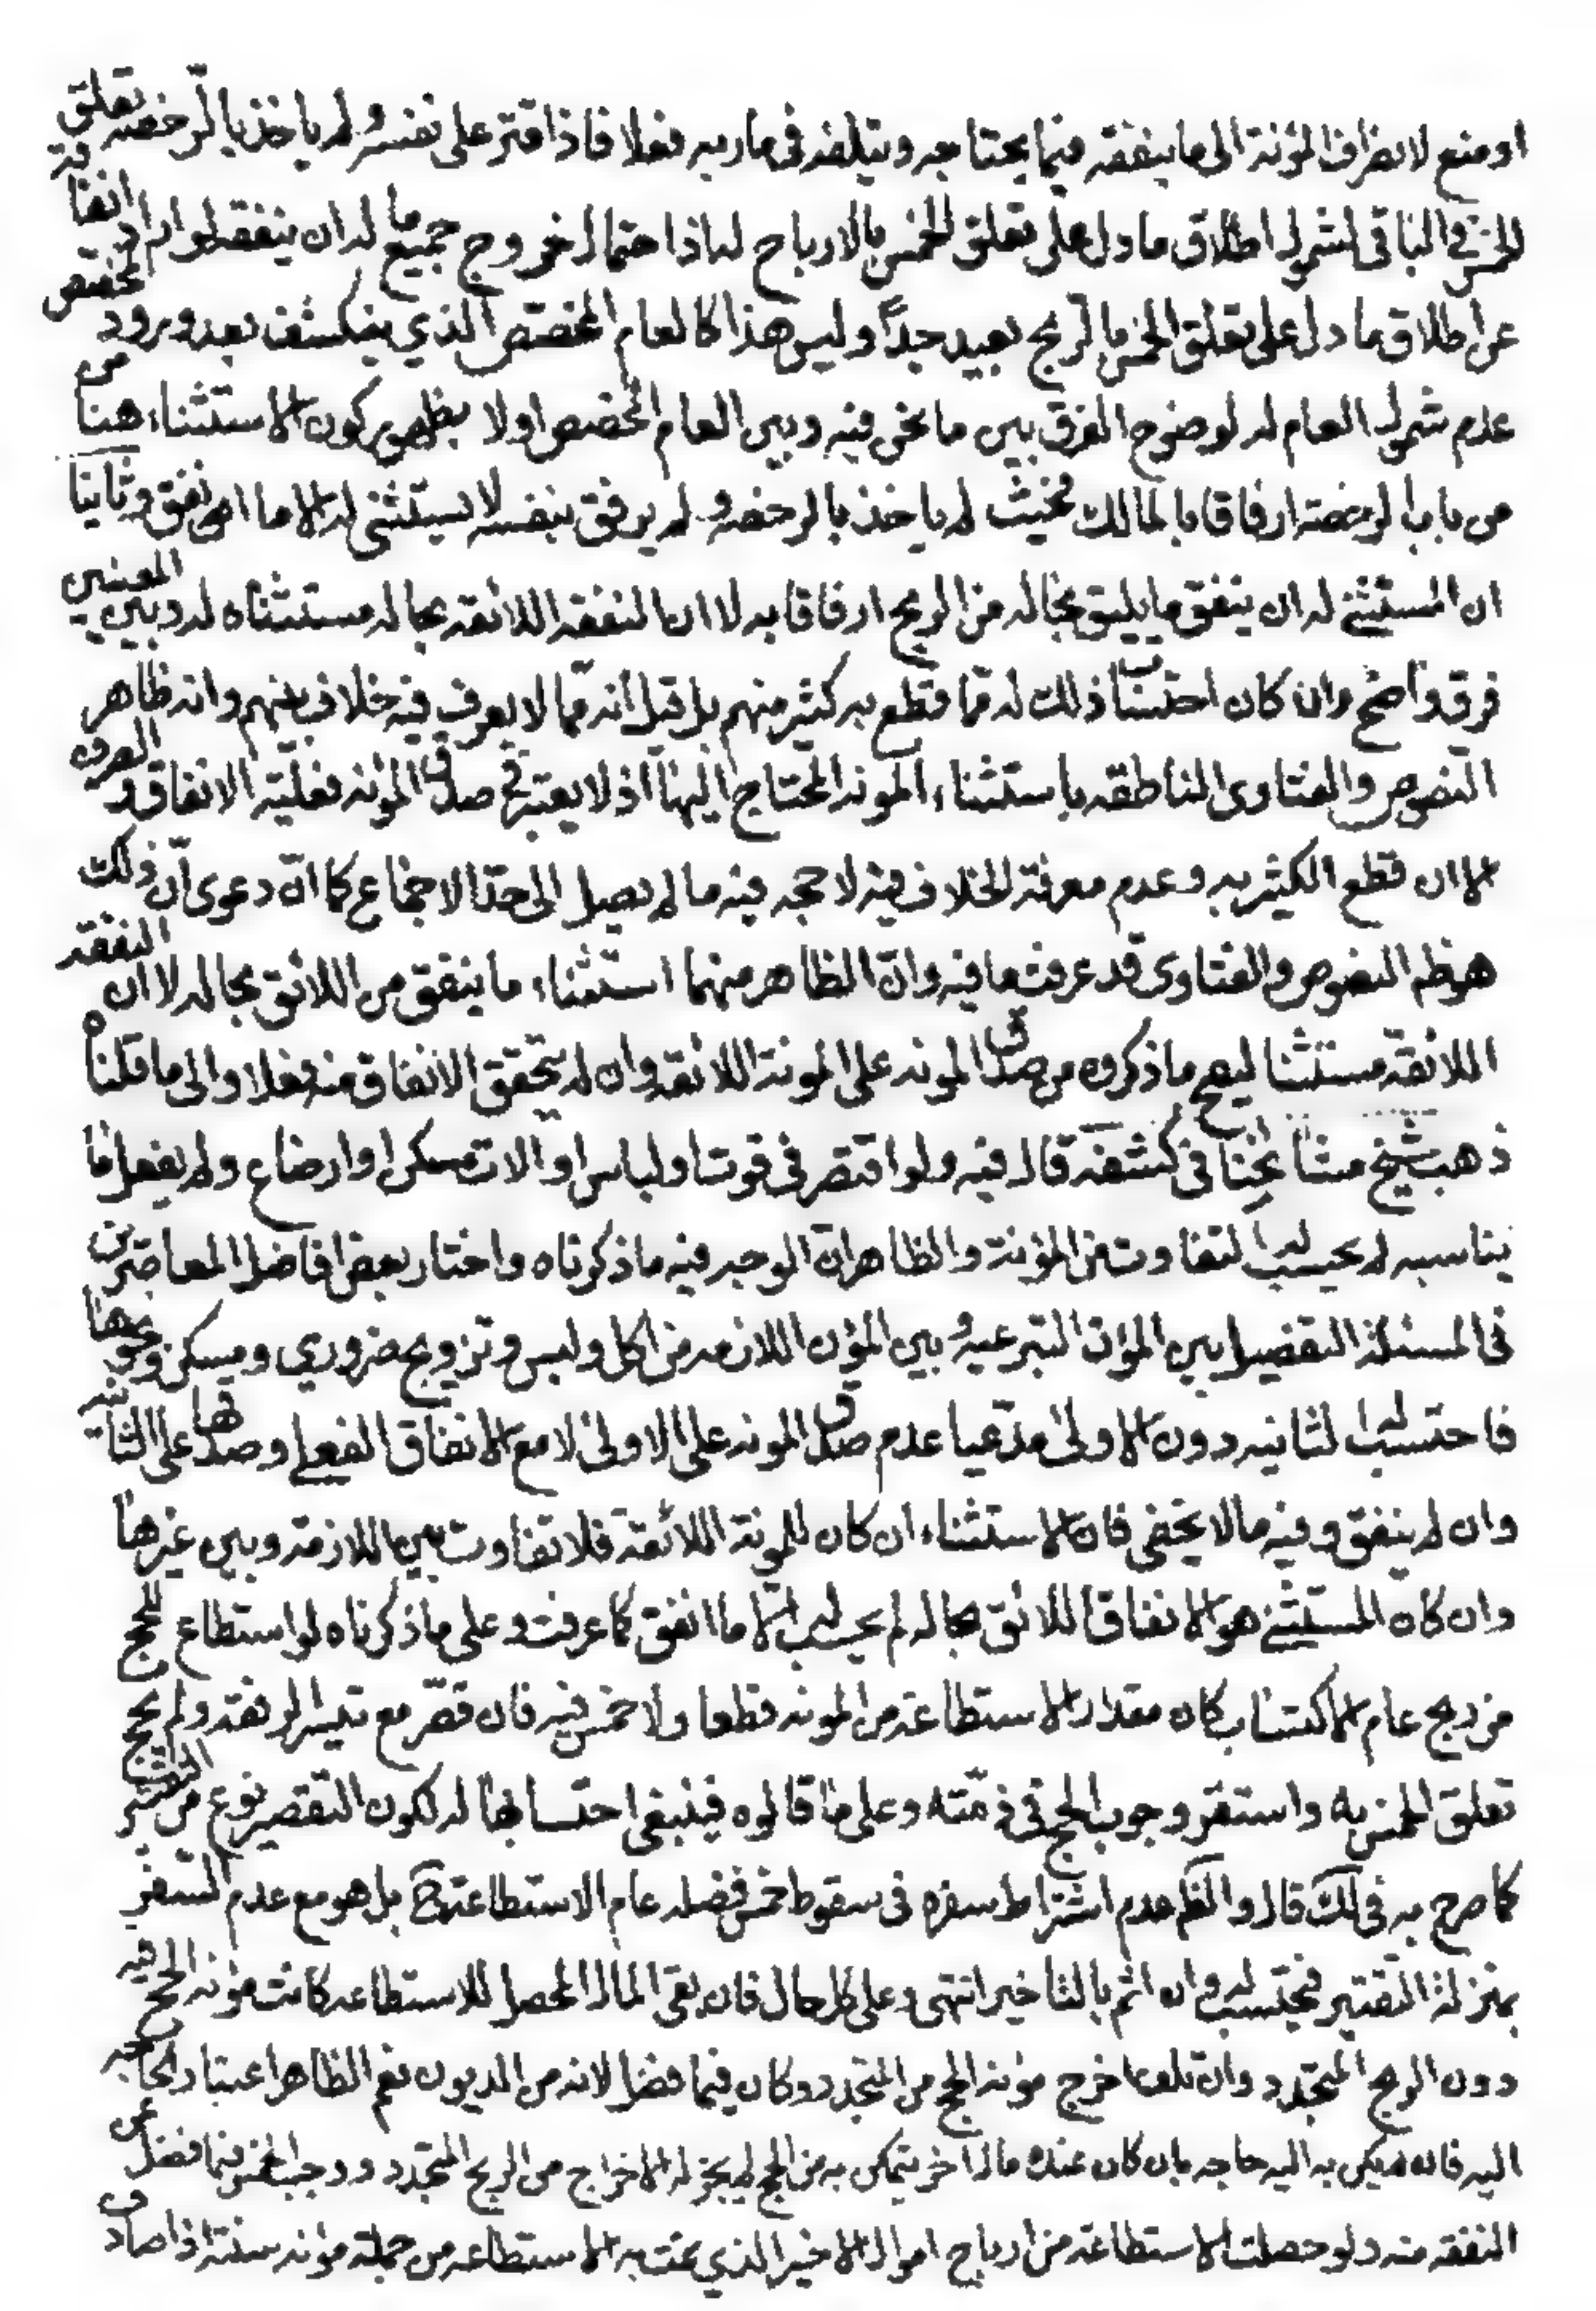 او منع لانصراف المؤنة الى ما ينفقه فيما يحتاجه ويتلفه في ماربه فعلا فاذا قتر على نفسه ولم ياخذ بالرخصه تعلق
الخمس في الباقى لشمول اطلاق ما دل على تعلق الخمس بالارباح لهذا احتمال خروج جميع ما له ان ينفقه لو اراد انفاقه
عن اطلاق ما دل على تعلق الخمس بالربح بعيد جداً وليس هذا كالعام المخصص الذي ينكشف بعد ورود المخصص
عدم شمول العام له لوضوح الفرق بين ما نحن فيه وبين العام المخصص اولا بظهور كون الاستثناء هنا من
من باب الرخصة ارفاقا بالمالك فحيث لم ياخذ بالرخصه ولم يرفق بنفسه لا يستثنى له الا ما انفق وثانيا
ان المستثنى له ان ينفق ما يليق بحاله من الربح ارفاقا به لا ان النفقه اللائقه بحاله مستثناه له وبين المعنيين
فرق واضح وان كان احتساب ذلك له مما قطع به كثير منهم بل قيل انه مما لا يعرف فيه خلاف بينهم وانه ظاهر
النصوص والفتاوى الناطقه باستثناء المونه المحتاج اليها اذ لا يعتبر في صدق المؤنه فعليّه الانفاق والصرف
الا ان قطع الكثير به وعدم معرفة الخلاف فيه لا حجه فيه ما لم يصل الى حد الاجماع كما انّ دعوى انّ ذلك
هو ظم النصوص والفتاوى قد عرفت ما فيه وانّ الظاهر منهما استثناء ما ينفق من اللائق بحاله لا ان النفقه
اللائقه مستثناه ليصح ما ذكروه من صدق المونه على المونة اللائقه وان لم يتحقق الانفاق منه فعلا والى ما قلنا
ذهب شيخ مشايخنا في كشفه قال فيه ولو اقتصر في قوت او لباس او الات مسكن او ارضاع ولم يفعل ما
يناسبه لم يحسب له التفاوت من المؤنة والظاهر انّ الوجه فيه ما ذكرناه واختار بعض افاضل المعاصرين
في المسئلة التفصيل بين المؤن التبرعيه وبين المؤن اللازمه من اكل ولبس وتزويج ضروري ومسكن ونحوها
فاحتسب له الثانيه دون الاولى مدّعيا عدم صدق المونه على الاولى الا مع الانفاق الفعلي وصدقها على الثانيه
وان لم ينفق وفيه ما لا يخفى فان الاستثناء ان كان للمونة اللائقة فلا تفاوت بين اللازمة وبين غيرها
وان كان المستثنى هو الانفاق اللائق بحاله لم يحسب له الا ما انفق كما عرفت وعلى ما ذكرناه لو استطاع للحج
من ربح عام الاكتساب كان مقدار الاستطاعة من المونه قطعا ولا خمس فيه فان قصّر مع تيسر الرفقه ولم يحج
تعلق الخمس به واستقر وجوب الحج في ذمّته وعلى ما قالوه فينبغى احتسابها له لكون التقصير نوع من التقتير
كما صرح به في لك قال والظم عدم اشتراط سفره في سقوط خمس فضله عام الاستطاعة بل هو مع عدم السفر
بمنزلة التقتير فيحتسب له وان اثم بالتاخير انتهى وعلى كل حال فان بقى المال المحصل للاستطاعه كانت مؤنه الحج فيه
دون الربح المتجدد وان تلف اخرج مؤنه الحج من المتجدد وكان فيما فضل لانه من الديون نعم الظاهر اعتبار الحاجه
اليه فان لم يكن به اليه حاجه بان كان عنده مال اخر يتمكن به من الحج لم يجز له الاخراج من الربح المتجدد ووجب الخمس فيما فضل عن
النفقه منه ولو حصلت الاستطاعة من ارباح اموال الاخير الذي تمت به الاستطاعه من جملة مؤنه سنته اذا صادف